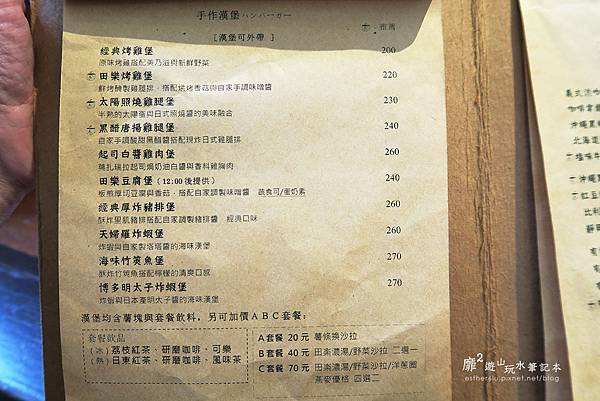 手作漢堡 ハンバーガー
：推薦
[漢堡可外帶]
經典烤雞堡 200
原味烤雞搭配美乃滋與新鮮野菜
田樂烤雞堡 220
鮮烤醃製雞腿排，搭配烘烤香菇與自家手調味噌醬
太陽照燒雞腿堡 230
半熟的太陽蛋與日式照燒醬的美味融合
黑醋唐揚雞腿堡 240
自家手調酸甜黑醋醬搭配現炸日式雞腿排
起司白醬雞肉堡 260
莫扎瑞拉起司焗奶油白醬與香料雞胸肉
田樂豆腐堡 (12:00後提供) 240
板煎厚切豆腐與香菇，搭配自家調製味噌醬 蔬食可/蛋奶素
經典厚炸豬排堡 260
酥炸里肌豬排搭配自家調製豬排醬，經典口味
天婦羅炸蝦堡 260
炸蝦與自家製塔塔醬的海味漢堡
海味竹筴魚堡 270
酥炸竹筴魚搭配檸檬的清爽口感
博多明太子炸蝦堡 270
炸蝦與日本產明太子醬的海味漢堡
漢堡均含薯塊與套餐飲料，另可加價ABC套餐：
套餐飲品
(冰) 荔枝紅茶、研磨咖啡、可樂
(熱) 日東紅茶、研磨咖啡、風味茶
A套餐 20元 薯條換沙拉
B套餐 40元 田樂濃湯/野菜沙拉 二選一
C套餐 70元 田樂濃湯/野菜沙拉/洋蔥圈
燕麥優格 四選二
義式濃咖
咖啡拿鐵
沖繩黑糖
北海道
沖繩
紅豆
比利
靜岡
靡²遊山玩水筆記本
estherslu.pixnet.net/blog